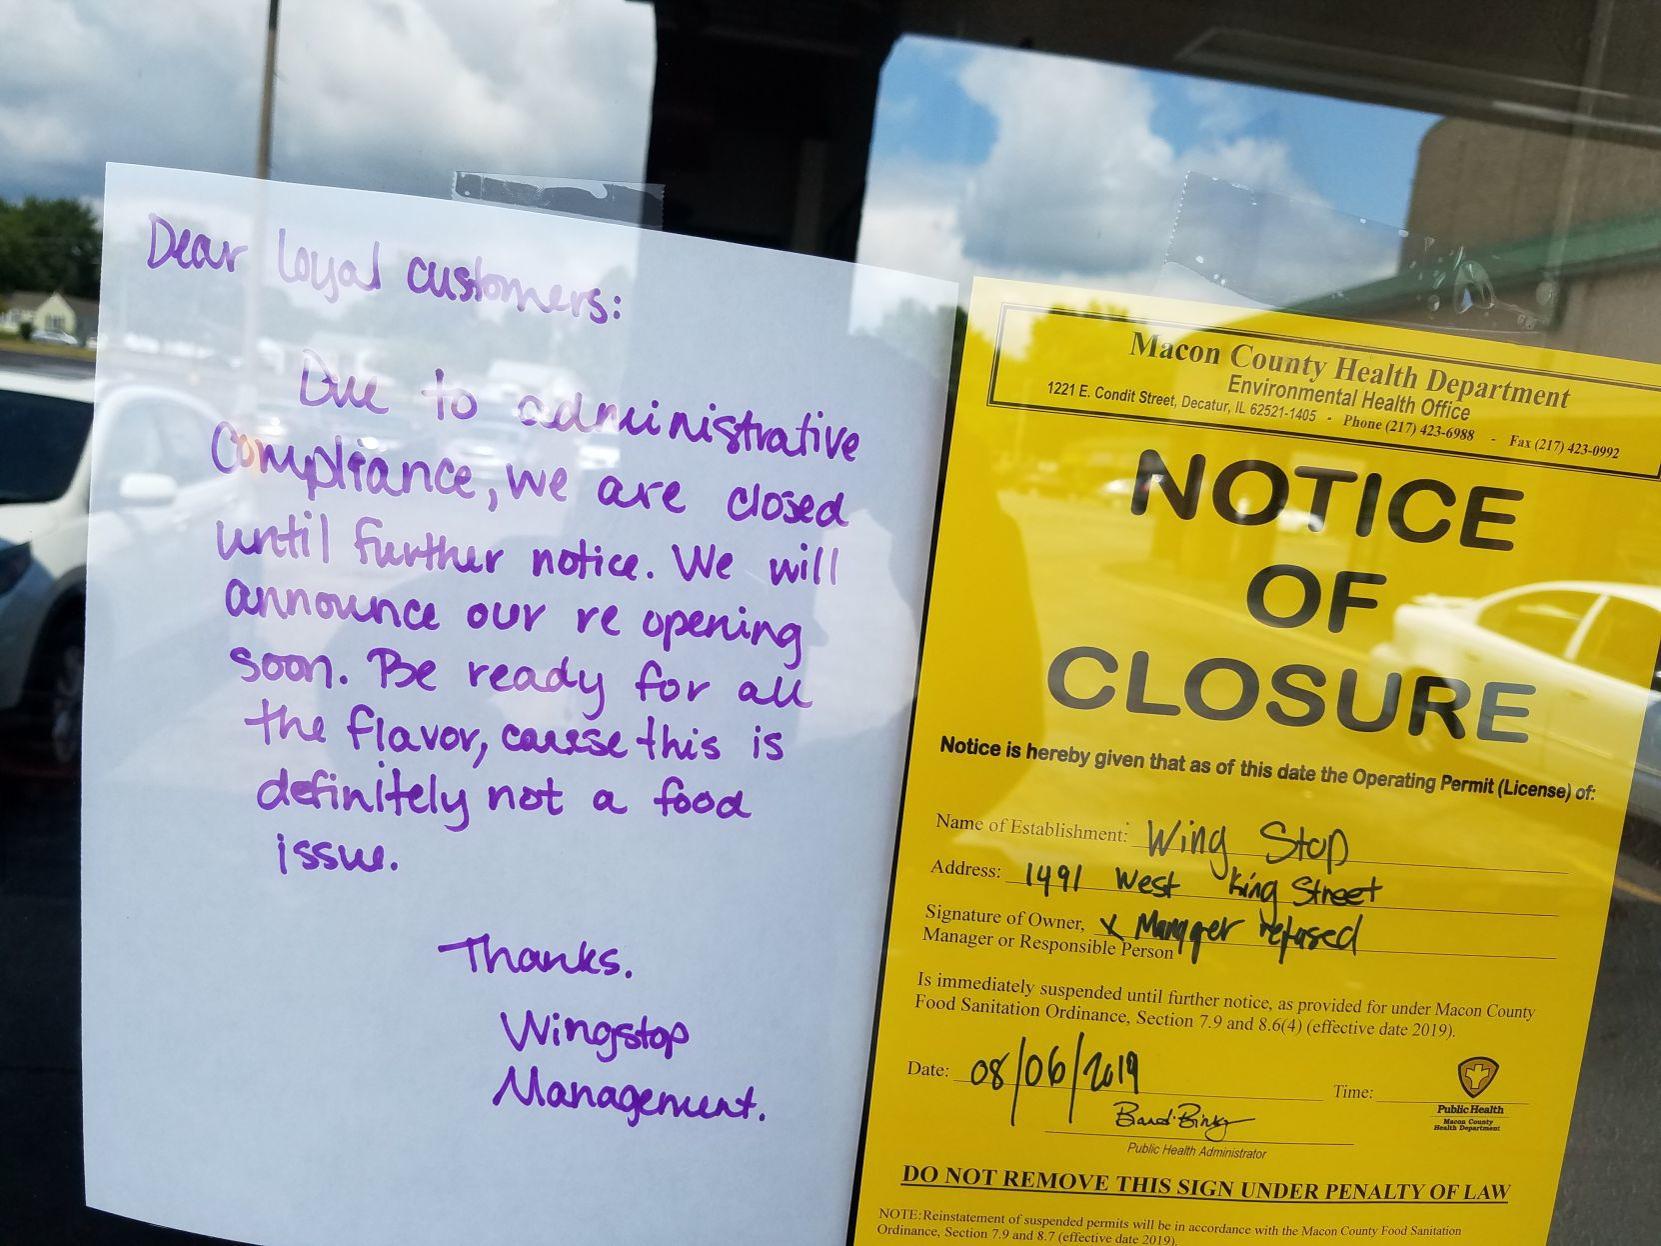 Dear loyal customers:
Due to administrative
Compliance, we are closed
until further notice. We will
announce our re opening
soon. Be ready for all
the flavor, cause this is
definitely not a food
issue.
Thanks.
Wingstop
Management.
Macon County Health Department
Environmental Health Office
1221 E. Condit Street, Decatur, IL 62521-1405 - Phone (217) 423-6988 - Fax (217) 423-0992
NOTICE
OF
CLOSURE
Notice is hereby given that as of this date the Operating Permit (License) of:
Name of Establishment: Wing Stop
Address: 1491 West King Street
Signature of Owner, x Manager refused
Manager or Responsible Person
Is immediately suspended until further notice, as provided for under Macon County
Food Sanitation Ordinance, Section 7.9 and 8.6(4) (effective date 2019).
Date: 08/06/2019 Time:
Public Health
Macon County
Health Department
Public Health Administrator
DO NOT REMOVE THIS SIGN UNDER PENALTY OF LAW
NOTE: Reinstatement of suspended permits will be in accordance with the Macon County Food Sanitation
Ordinance, Section 7.9 and 8.7 (effective date 2019).